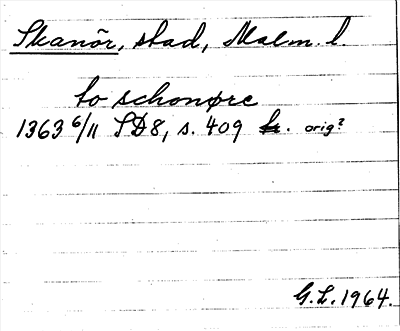 Skanör, stad, Malm. l.
to schonøre
1363 6/11 SD8, s. 409 or. orig?
G.L. 1964.